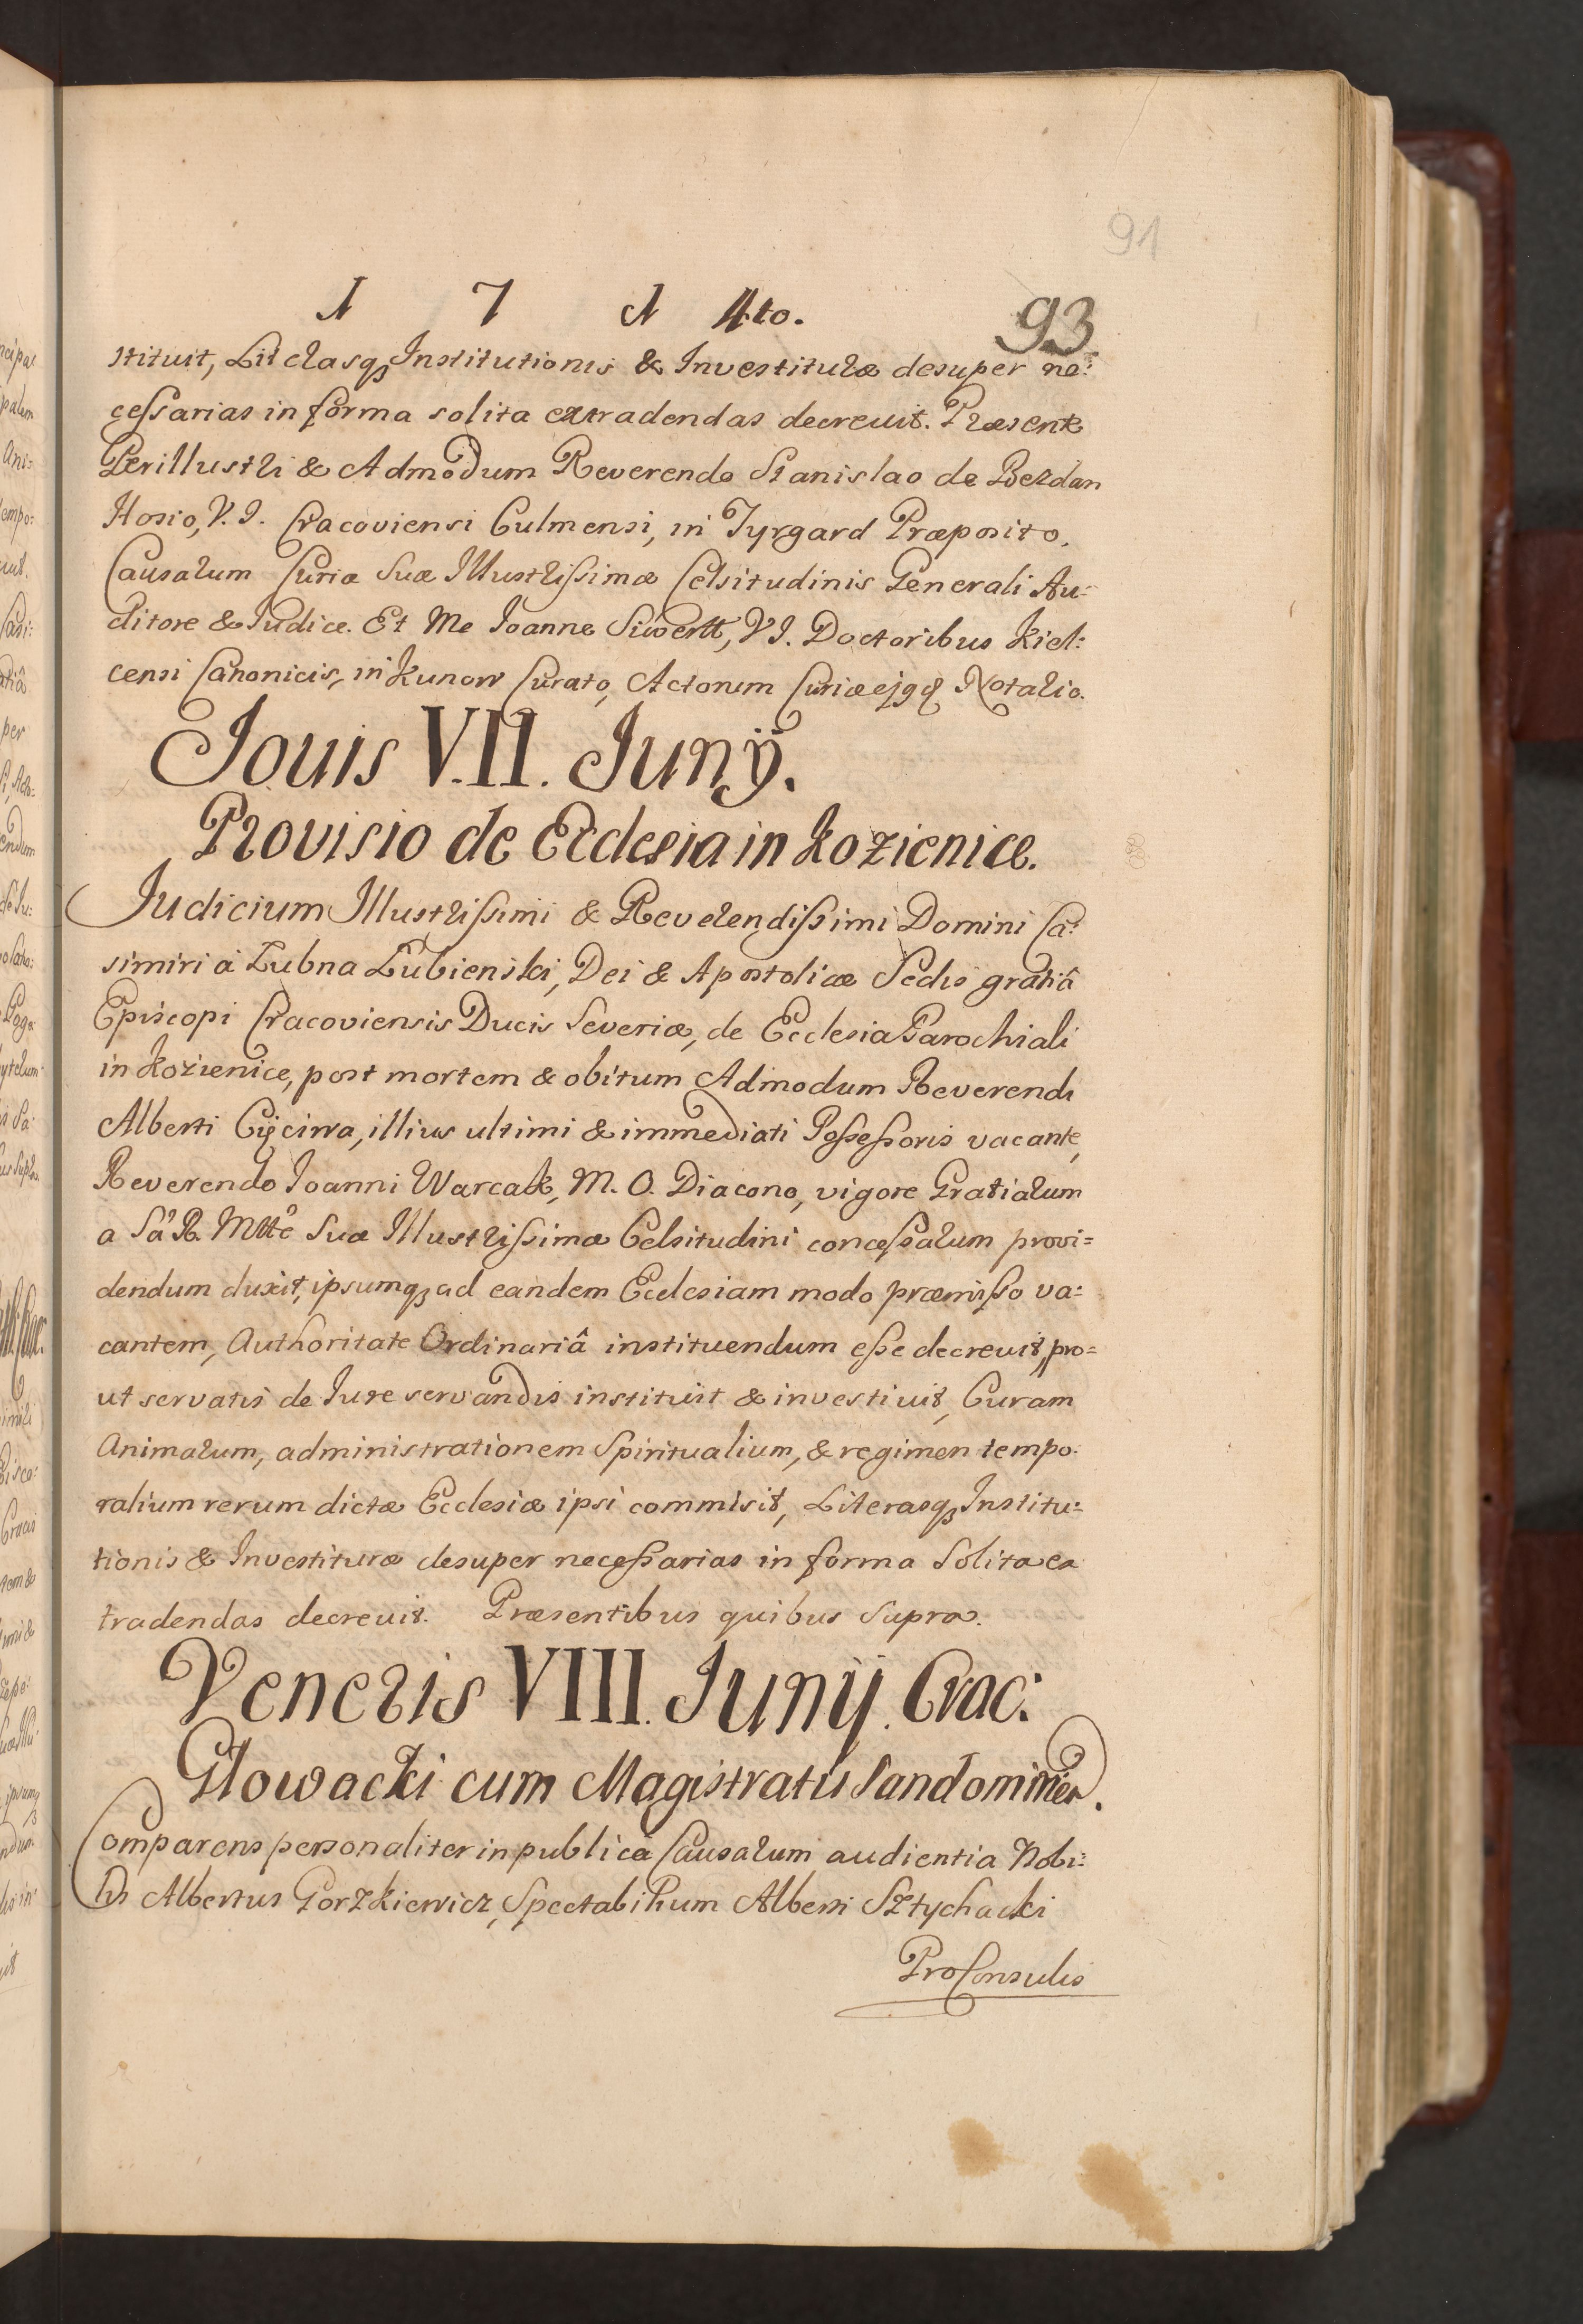 91
1 7 1 4to. 93
stituit, Literasq₃ Institutionis & Investituræ desuper ne:
cessarias in forma solita extradendas decrevit. Præsente
Perillustri & Admodum Reverendo Stanislao de Bezdan
Hosio, V. I. Cracoviensi Culmensi, in Tyrgard Præposito,
Causarum Curiæ Suæ Illustrissimæ Celsitudinis Generali Au:
ditore & Iudice. Et Me Ioanne Siwertt, V I. Doctoribus Kiel:
censi Canonicis, in Kunow Curato, Actorum Curiæ ejqd Notario.
Jouis V.II. Junÿ.
Provisio de Ecclesia in Kozienice.
Judicium Illustrissimi & Reverendissimi Domini Ca:
simiri á Łubna Łubienski, Dei & Apostolicæ Sedis gratiâ
Episcopi Cracoviensis Ducis Severiæ, de Ecclesia Parochiali
in Kozienice, post mortem & obitum Admodum Reverendi
Alberti, illius ultimi & immediati Possessoris vacante,
Reverendo Ioanni Warcak, M. O. Diacono, vigore Gratiarum
a Sa R. Mtte Suæ Illustrissimæ Celsitudini concessarum provi=
dendum duxit, ipsumq₃ ad eandem Ecclesiam modo præmisso va:
cantem, Authoritate Ordinariâ instituendum esse decrevit, pro=
ut servatis de Iure servandis instituit & investiuit, Curam
Animarum, administrationem Spiritualium, & regimen tempo:
ralium rerum dictæ Ecclesiæ ipsi commisit, Literasq₃ Institu:
tionis & Investituræ desuper necessarias in forma Solita ex
tradendas decrevit. Præsentibus quibus Supra.
Veneris VIII. Junij. Crac:
Głowacki cum Magistratu Sandomirien.
Comparens personaliter in publica Causarum audientia Nobi:
lis Albertus Gorzkiewicz, Spectabilium Alberti Sztychacki
ProConsulis